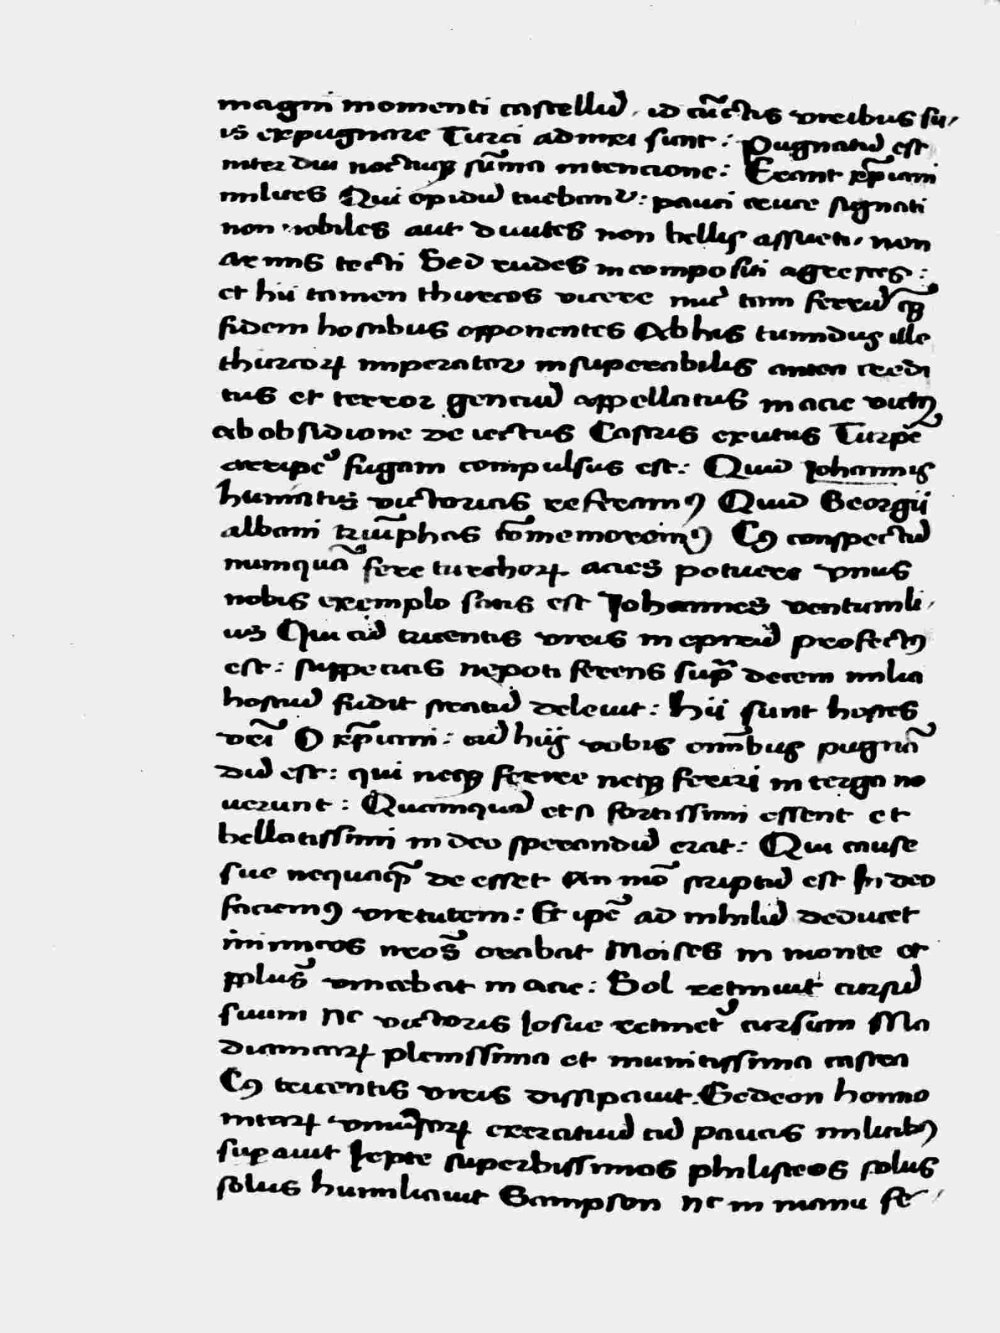 magni momenti castellū · id cūctis viribus su,
is expugnare Turci adnixi sunt : Pugnatū est
inter diu noctuqȝ sūma intencione : Erant xp̄iani
milites Qui opidū tuebant᷑ : pauci cruce signati
non nobiles aut diuites non bellis assueti, non
armis tecti Sed rudes incompositi agrestes :
et hii tamen thurcos vicere nec̄ tam ferrū q̄ȝ
fidem hostibus opponentes Ab his tumidus ille
thurcoꝝ imperator insuperabilis antea credi
tus et terror genciū appellatus in acie victꝰ
Ab obsidione deiectus Castris exutus Turpē
arripē fugam compulsus est : Quid Johannis
huniatis victorias referamꝰ Quid Georgii
albani triūphos cōmemoremꝰ Cꝰ conspectū
numquā fere turchoꝝ acies potuere vnus
nobis exemplo satis est Johannes ventumli,
us Qui cū tricentis viris in eprūū profectꝰ
est : suppecias nepoti ferens sup̄ decem milia
hostiū fudit stratū deleuit : hii sunt hostes
vrī O xp̄iani : cū hiis vobis omībus pugnā
dū est : qui neqȝ ferre neqȝ feriri in terga no
uerunt : Quamquā etsi fortissimi essent et
bellatissimi in deo sperandū erat : Qui cause
sue nequaq̄ȝ deesset An nō scriptū est In deo
faciemꝰ virtutem : Et ipē ad nihilū deducet
inimicos nr̄os orabat Moises in monte et
pp̄lus vincebat in acie : Sol retinuit cursū
suum Nc victoris Josue retinet᷑ cursum Ma
dianaroꝝ plenissima et munitissima castra
Cꝰ tricentis viris dissipauit. Gedeon homo
nitaꝝ vmīsoꝝ exercitiū cū paucis militibꝰ
suꝑauit Jepte superbissimos philisteos solus
solus humiliauit Sampson Nc in manu fe